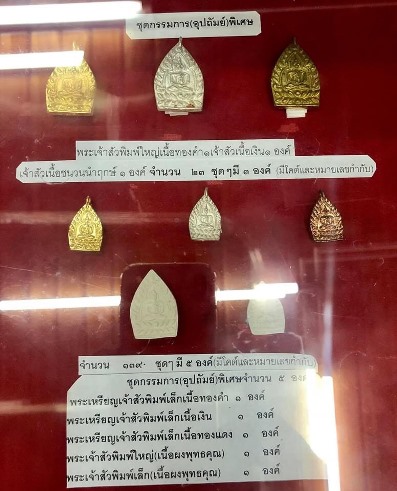 ชุดกรรมการ(อุปถัมย์)พิเศษ
พระเจ้าสัวพิมพ์ใหญ่เนื้อทองคำ๑เจ้าสัวเนื้อเงิน๑ องค์
เจ้าสัวเนื้อชนวนนำฤกษ์ ๑ องค์ จำนวน ๒๓ ชุดๆมี ๓ องค์ (มีโคต์และหมายเลขกำกับ)
จำนวน ๑๓๙ ชุดๆ มี ๕ องค์(มีโคต์และหมายเลขกำกับ)
ชุดกรรมการ(อุปถัมย์)พิเศษจำนวน ๕ องค์
พระเหรียญเจ้าสัวพิมพ์เล็กเนื้อทองคำ ๑ องค์
พระเหรียญเจ้าสัวพิมพ์เล็กเนื้อเงิน ๑ องค์
พระเหรียญเจ้าสัวพิมพ์เล็กเนื้อทองแดง ๑ องค์
พระเจ้าสัวพิมพ์ใหญ่(เนื้อผงพุทธคุณ) ๑ องค์
พระเจ้าสัวพิมพ์เล็ก(เนื้อผงพุทธคุณ) ๑ องค์